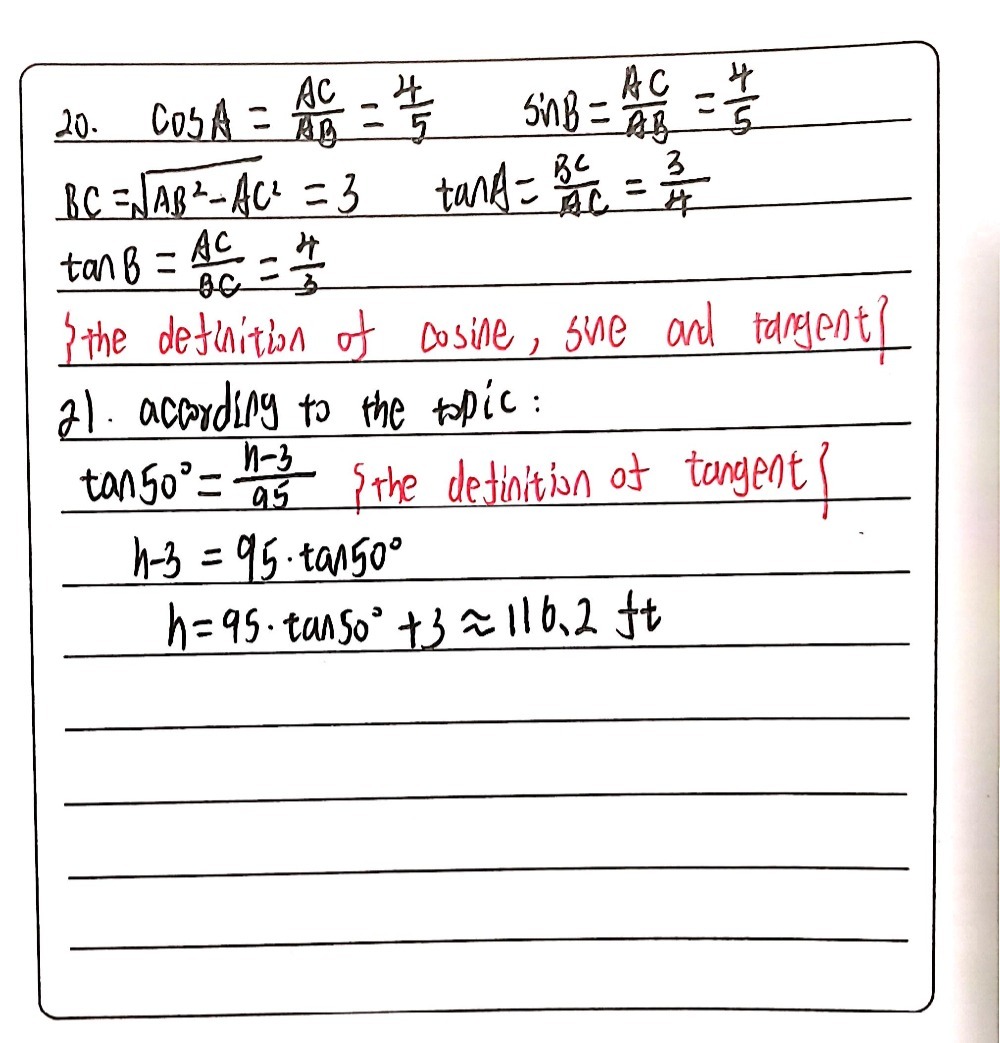 20. cosA = AC/AB = 4/5 sinB = AC/AB = 4/5
BC = √AB²-AC² = 3 tanA = BC/AC = 3/4
tanB = AC/BC = 4/3
}the definition of cosine, sine and tangent{
21. according to the topic:
tan50° = h-3/95 }the definition of tangent{
h-3 = 95·tan50°
h = 95·tan50° + 3 ≈ 116.2 ft